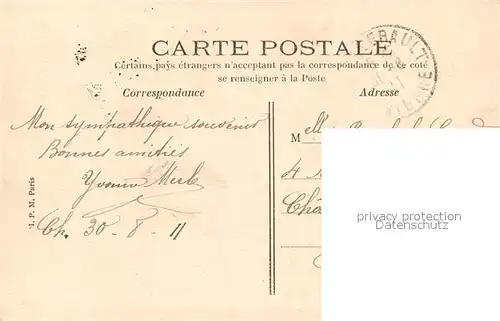 CARTE POSTALE
Certains pays étrangers n'acceptant pas la correspondance de ce coté
se renseigner à la Poste
Correspondance
Adresse
Mon sympathique souvenir
Bonnes amitiés
Yvonne Merle
Ch. 30-8-11
Melle
4
Châ
I. P. M. Paris
ERAULT
VIENNE
privacy protection
Datenschutz